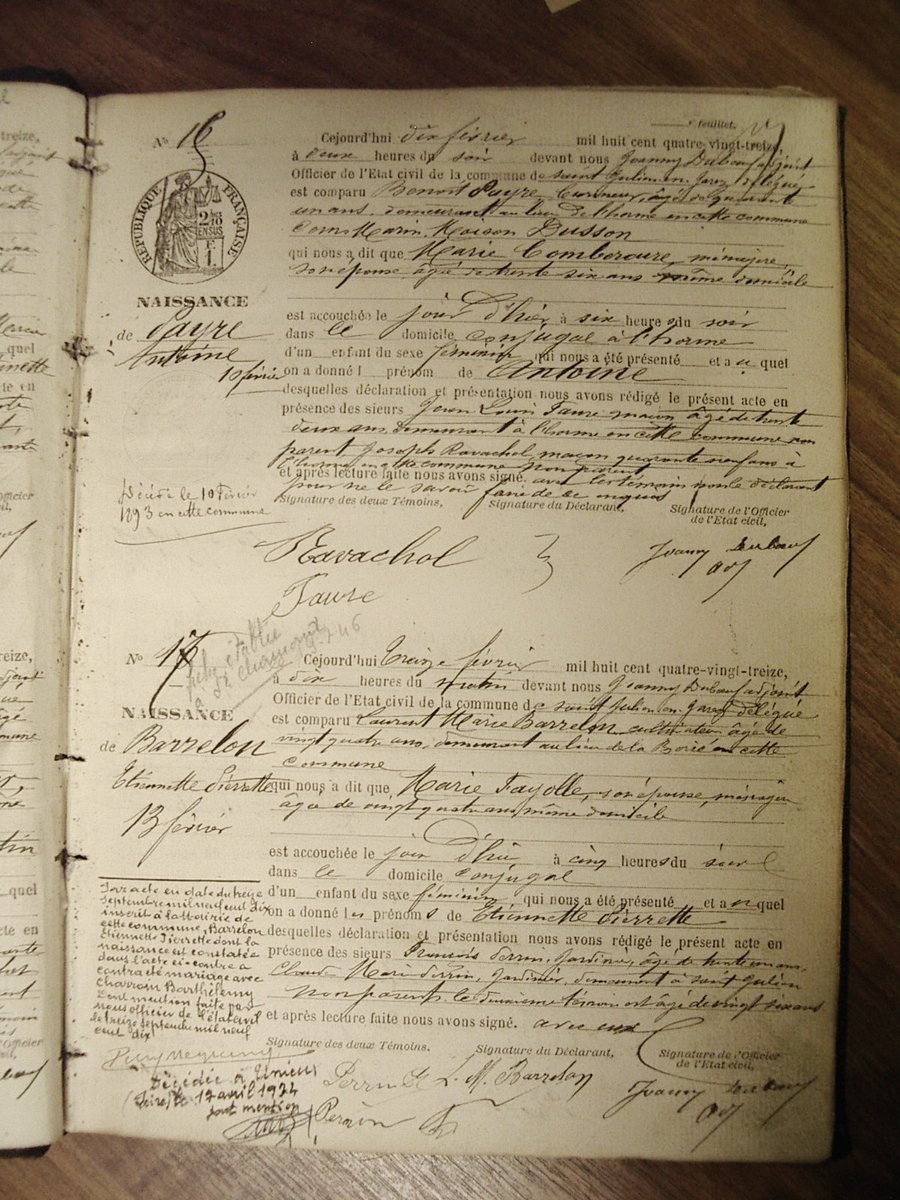 feuillet.
N° 16
Cejourd'hui dix février mil huit cent quatre-vingt-treize,
à deux heures du soir devant nous Joanny Duboeuf adjoint
Officier de l'Etat civil de la commune de Saint Julien en Jarez délégué
est comparu Benoit Payre, âgé de quarante
un ans, demeurant au lieu de l'horme en cette commune
Maison Dusson
qui nous a dit que Marie Comberoure, ménagère,
son épouse âgée de trente six ans même domicile
REPUBLIQUE FRANÇAISE
NAISSANCE
de Payre
Antoine
10 février
est accouchée le jour d'hier à six heures du soir
dans le domicile conjugal à l'horme
d'un enfant du sexe féminin qui nous a été présenté et auquel
on a donné l prénom de Antoine
desquelles déclaration et présentation nous avons rédigé le présent acte en
présence des sieurs Jean Louis Faure maçon âgé de trente
deux ans demeurant à l'horme en cette commune non
parent Joseph Ravachol maçon quarante neuf ans à
l'horme en cette commune non parent
et après lecture faite nous avons signé. avec les témoins non le déclarant
pour ne le savoir faire de ce enquis
Décédé le 10 février
1893 en cette commune
Signature des deux Témoins, Signature du Déclarant, Signature de l'Officier
de l'Etat civil,
Ravachol
Faure
Joanny Duboeuf
adj
N° 17
Cejourd'hui treize février mil huit cent quatre-vingt-treize,
à dix heures du matin devant nous Joanny Duboeuf adjoint
Officier de l'Etat civil de la commune de Saint Julien en Jarez délégué
est comparu Laurent Marie Barrelon cultivateur âgé de
vingt quatre ans, demeurant au lieu de la Borie en cette
commune
NAISSANCE
de Barrelon
Etiennette Pierrette
13 février
qui nous a dit que Marie Fayolle, son épouse, ménagère
âgée de vingt quatre ans même domicile
est accouchée le jour d'hier à cinq heures du soir
dans le domicile conjugal
d'un enfant du sexe féminin qui nous a été présenté et auquel
on a donné les prénoms de Etiennette Pierrette
desquelles déclaration et présentation nous avons rédigé le présent acte en
présence des sieurs François Perrin, Jardinier, âgé de trente ans,
Claude Marie Perrin, Jardinier, demeurant à Saint Julien
non parents, le deuxième témoin est âgé de vingt six ans
et après lecture faite nous avons signé. avec eux
Par acte en date du treize
septembre mil neuf cent dix
inscrit à la Mairie de
cette commune, Barrelon
Etiennette Pierrette dont la
naissance est constatée
dans l'acte ci-contre a
contracté mariage avec
Charroin Barthélemy
Dont mention faite par
nous officier de l'état civil
le treize septembre mil neuf
cent dix
Signature des deux Témoins. Signature du Déclarant, Signature de l'Officier
de l'Etat civil,
Décédée à Unieux
(Loire) le 12 avril 1974
dont mention
Perrin L. M. Barrelon
Perrin
Joanny Duboeuf
adj